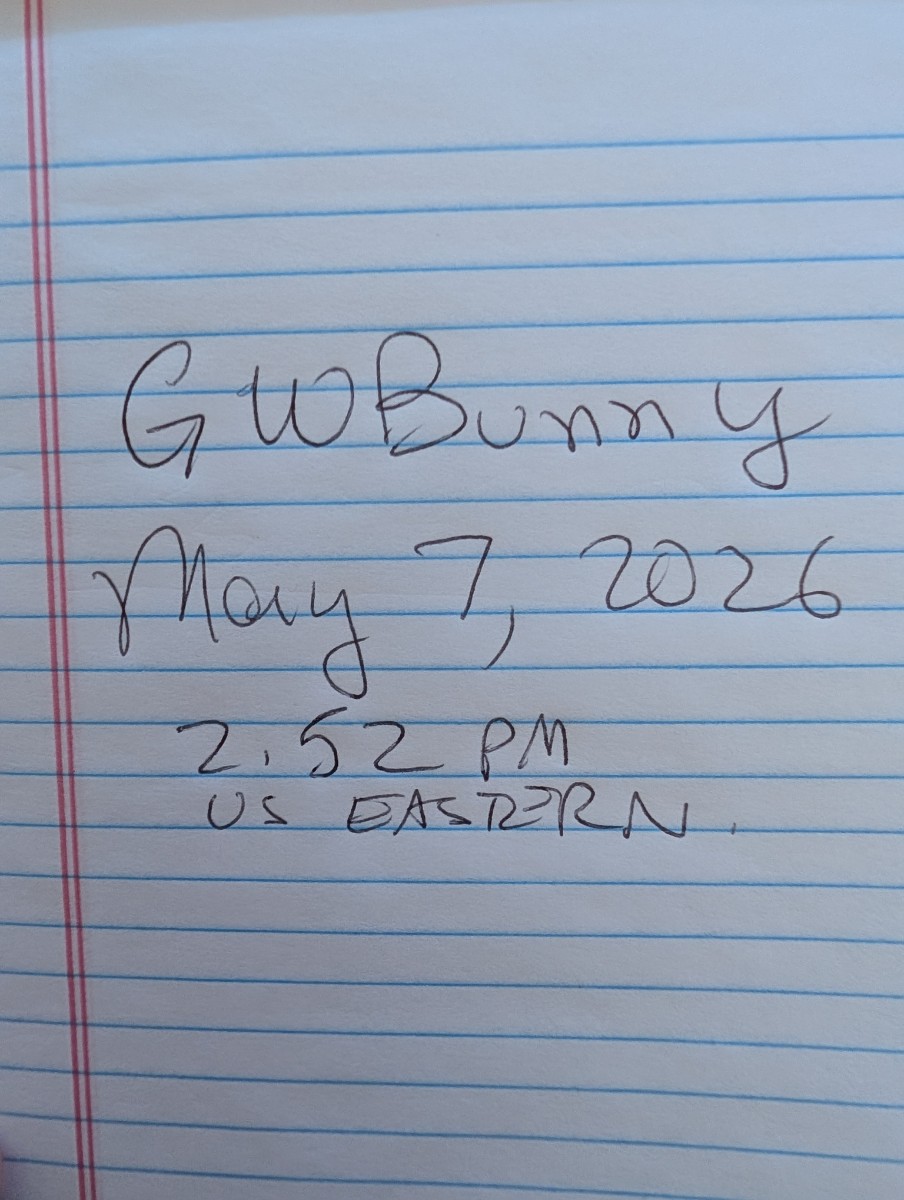 GWBunny
May 7, 2026
2.52 PM
US EASTERN.